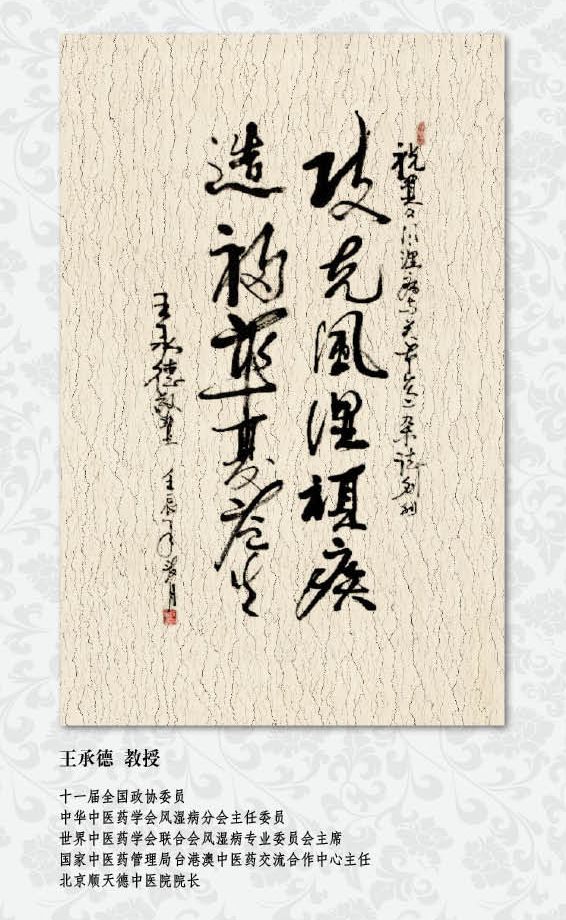 祝贺《风湿病与关节炎》杂志创刊
攻克风湿顽疾
造福华夏苍生
王承德敬题 壬辰年
王承德 教授
十一届全国政协委员
中华中医药学会风湿病分会主任委员
世界中医药学会联合会风湿病专业委员会主席
国家中医药管理局台港澳中医药交流合作中心主任
北京顺天德中医院院长